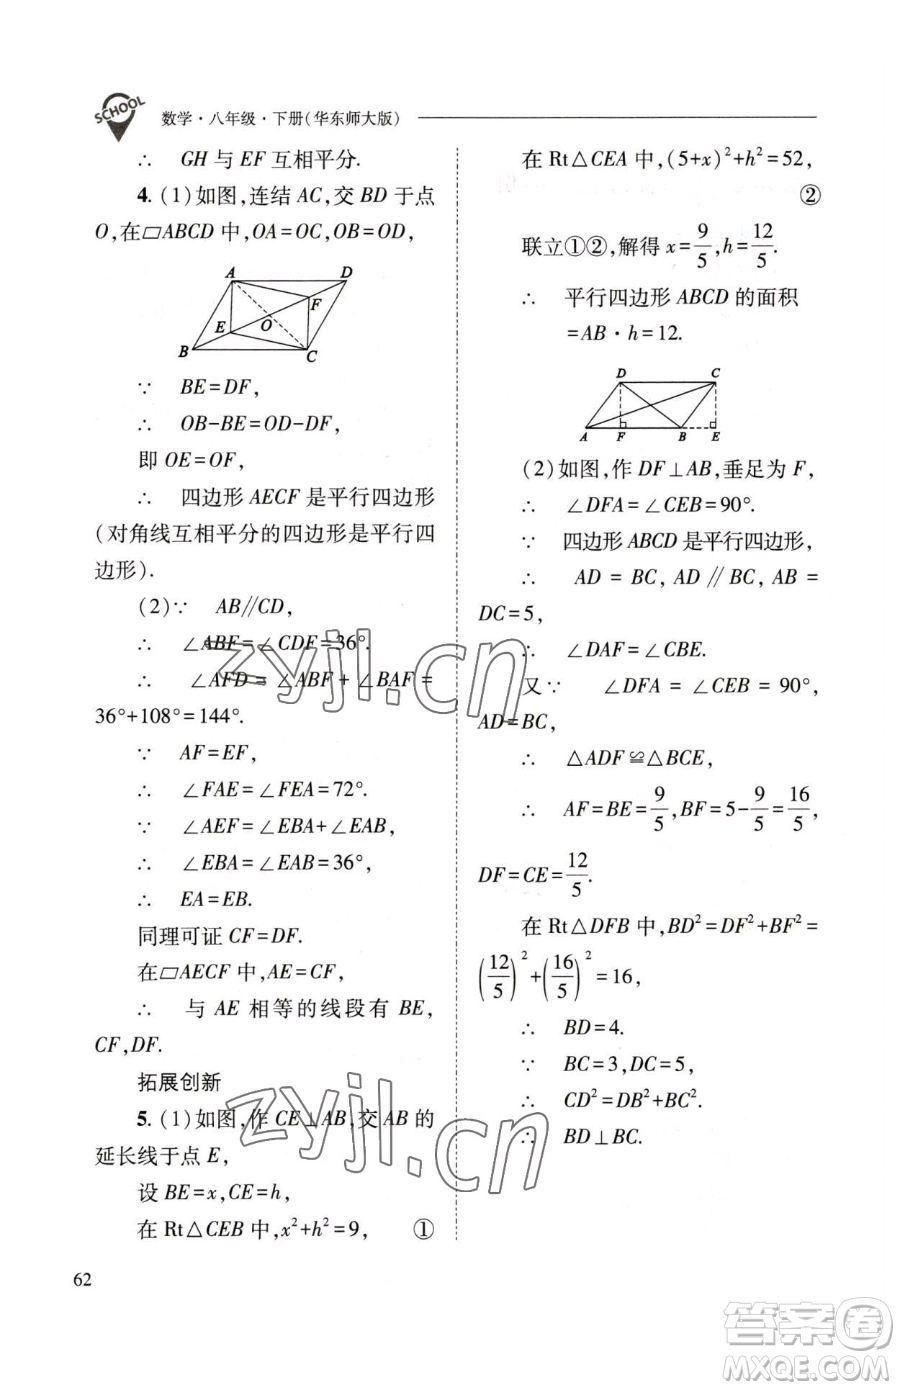 SCHOOL
数学·八年级·下册(华东师大版)
∴ GH 与 EF 互相平分.
4. (1)如图,连结 AC,交 BD 于点
O,在▱ABCD 中,OA=OC,OB=OD,
A D
F
E O
B C
∵ BE=DF,
∴ OB-BE=OD-DF,
即 OE=OF,
∴ 四边形 AECF 是平行四边形
(对角线互相平分的四边形是平行四
边形).
(2)∵ AB∥CD,
∴ ∠ABF=∠CDF=36°.
∴ ∠AFD=∠ABF+∠BAF=
36°+108°=144°.
∵ AF=EF,
∴ ∠FAE=∠FEA=72°.
∵ ∠AEF=∠EBA+∠EAB,
∴ ∠EBA=∠EAB=36°,
∴ EA=EB.
同理可证 CF=DF.
在▱AECF 中,AE=CF,
∴ 与 AE 相等的线段有 BE,
CF,DF.
拓展创新
5. (1)如图,作 CE⊥AB,交 AB 的
延长线于点 E,
设 BE=x,CE=h,
在 Rt△CEB 中,x²+h²=9, ①
在 Rt△CEA 中,(5+x)²+h²=52,
②
联立①②,解得 x=9/5,h=12/5.
∴ 平行四边形 ABCD 的面积
=AB·h=12.
D C
A F B E
(2)如图,作 DF⊥AB,垂足为 F,
∴ ∠DFA=∠CEB=90°.
∵ 四边形 ABCD 是平行四边形,
∴ AD=BC,AD∥BC,AB=
DC=5,
∴ ∠DAF=∠CBE.
又∵ ∠DFA=∠CEB=90°,
AD=BC,
∴ △ADF≌△BCE,
∴ AF=BE=9/5,BF=5-9/5=16/5,
DF=CE=12/5.
在 Rt△DFB 中,BD²=DF²+BF²=
(12/5)²+(16/5)²=16,
∴ BD=4.
∵ BC=3,DC=5,
∴ CD²=DB²+BC².
∴ BD⊥BC.
62
zyjl.cn
zyjl.cn
答案圈
MXQE.COM